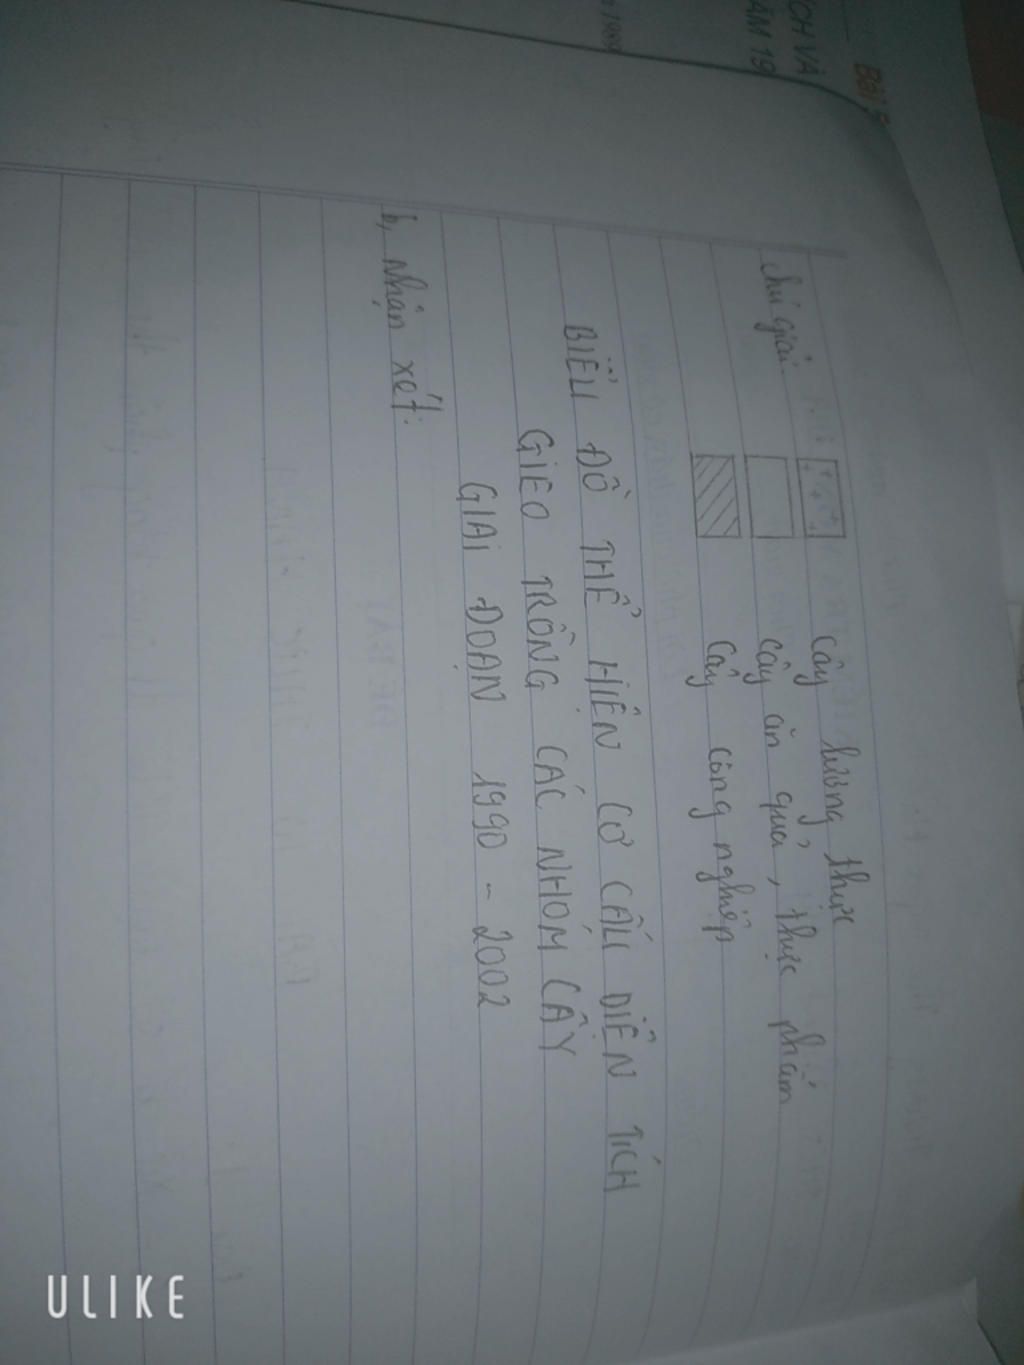 Bài
CH VÀ
ĂM 19
1989
Chú giải:
Cây lương thực
Cây ăn quả, thực phẩm
Cây công nghiệp
BIỂU ĐỒ THỂ HIỆN CƠ CẤU DIỆN TÍCH
GIEO TRỒNG CÁC NHÓM CÂY
GIAI ĐOẠN 1990 - 2002
b, nhận xét:
ULIKE